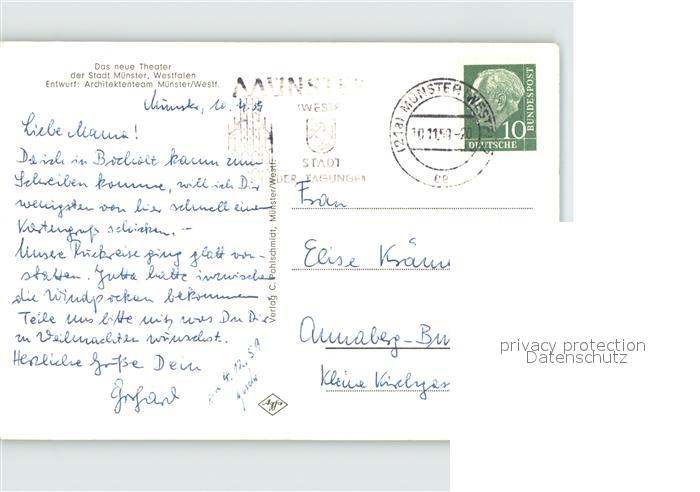 Das neue Theater
der Stadt Münster, Westfalen
Entwurf: Architektenteam Münster/Westf.
Münster, 10.11.59
Liebe Mama!
Da ich in Bocholt kaum zum
Schreiben komme, will ich Dir
wenigsten von hier schnell einen
Kartengruß schicken. -
Unsere Rückreise ging glatt von-
statten. Jutta hatte inzwischen
die Windpocken bekommen
Teile uns bitte mit, was Du Dir
zu Weihnachten wünschst.
Herzliche Grüße Dein
Gerhard
4.12.59
Verlag C. Pohlschmidt, Münster/Westf.
MÜNSTER
WESTF
STADT
DER TAGUNGEN
(21a) MÜNSTER (WESTF)
10.11.59-20
10
DEUTSCHE
BUNDESPOST
Frau
Elise
Annaberg-Bu
Kleine Kirchgas
privacy protection
Datenschutz